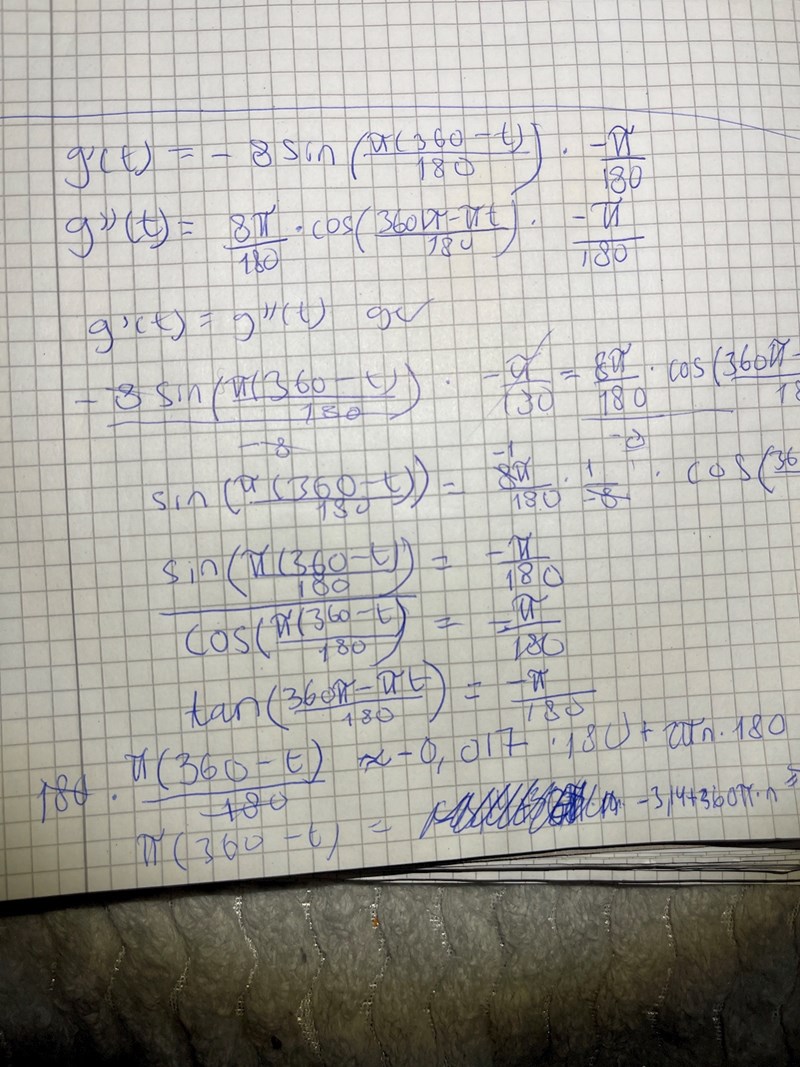 g'(t) = - 8 sin (π(360-t)/180) · -π/180
g''(t) = 8π/180 · cos(360π-πt/180) · -π/180
g'(t) = g''(t)
- 8 sin(π(360-t)/180) · -π/180 = 8π/180 · cos(360π-
-8 -8
sin(π(360-t)/180) = -1 8π/180 · 1/-8 · cos(36
sin(π(360-t)/180) = -π/180
cos(π(360-t)/180) = -π/180
tan(360π-πt/180) = -π/180
180 · π(360-t)/180 ≈ -0,017 · 180 + 2πn · 180
π(360-t) = -3,14+360π·n